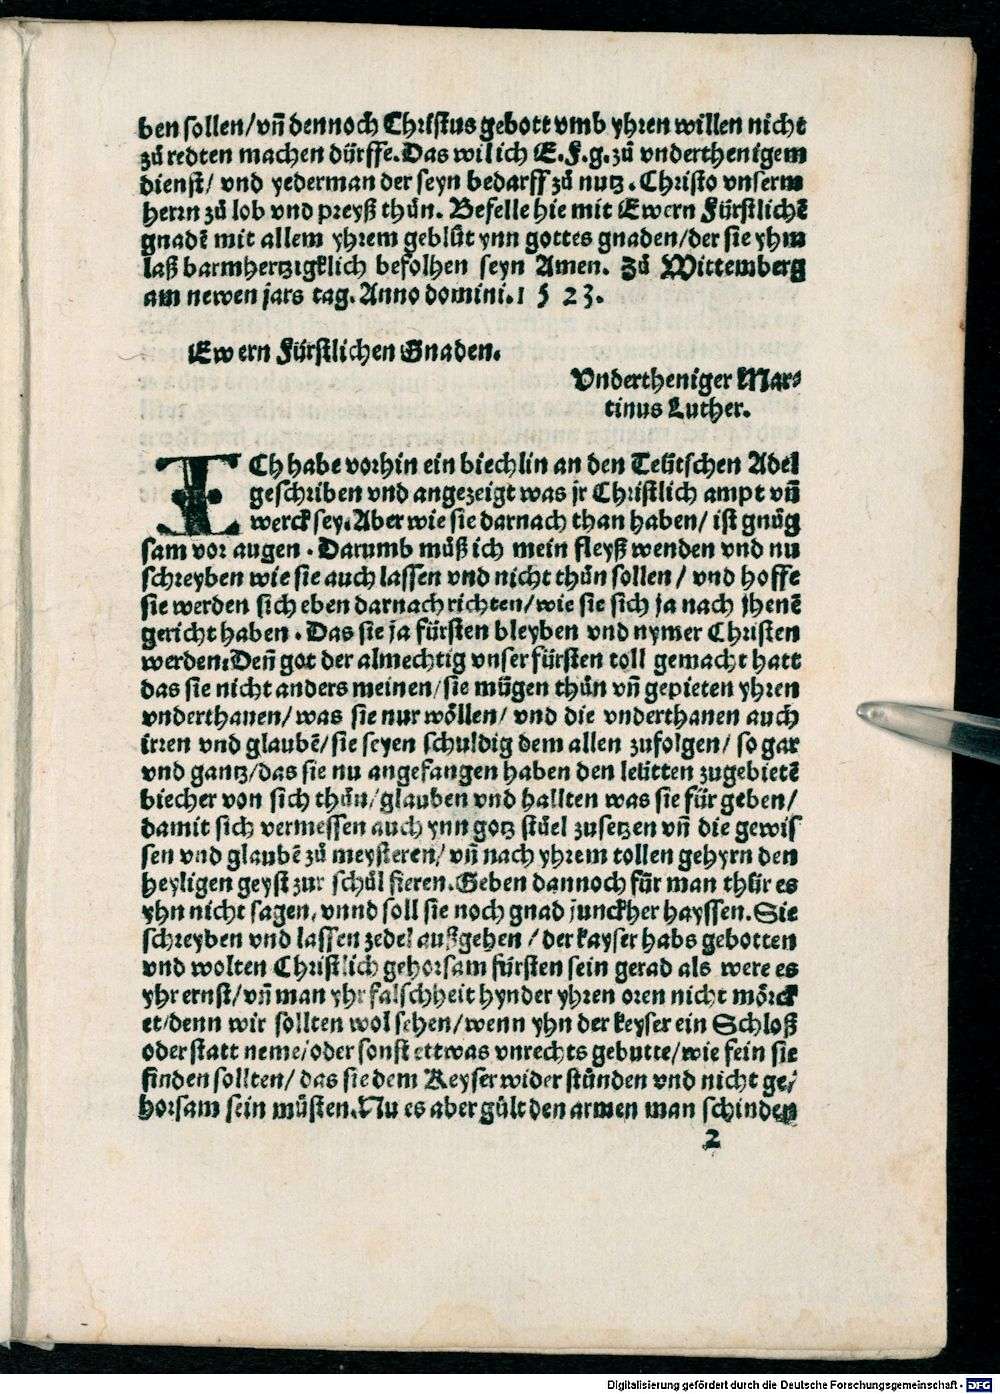 ben sollen/vñ dennoch Christus gebott vmb yhren willen nicht
zů redten machen dürffe. Das wil ich E.F.g. zů vnderthenigem
dienst/ vnd yederman der seyn bedarff zů nutz. Christo vnserm
herrn zů lob vnd preyß thůn. Befelle hie mit Ewern Fürstlichē
gnadē mit allem yhrem geblůt ynn gottes gnaden/der sie yhm
laß barmhertzigklich befolhen seyn Amen. Zů Wittemberg
am newen jars tag. Anno domini. 1 5 23.
Ewern Fürstlichen Gnaden.
Vndertheniger Mar⸗
tinus Luther.
ICh habe vorhin ein biechlin an den Teütschen Adel
geschriben vnd angezeigt was jr Christlich ampt vñ
werck sey. Aber wie sie darnach than haben/ ist gnůg
sam vor augen. Darumb můß ich mein fleyß wenden vnd nu
schreyben wie sie auch lassen vnd nicht thůn sollen/ vnd hoffe
sie werden sich eben darnach richten/wie sie sich ja nach jhenē
gericht haben. Das sie ja fürsten bleyben vnd nymer Christen
werden. Deñ got der almechtig vnser fürsten toll gemacht hatt
das sie nicht anders meinen/sie mügen thůn vñ gepieten yhren
vnderthanen/was sie nur wöllen/ vnd die vnderthanen auch
irren vnd glaubē/sie seyen schuldig dem allen zufolgen/ so gar
vnd gantz/das sie nu angefangen haben den leütten zugebietē
biecher von sich thůn/glauben vnd hallten was sie für geben/
damit sich vermessen auch ynn gotz stůel zusetzen vñ die gewis
sen vnd glaubē zů meysteren/ vñ nach yhrem tollen gehyrn den
heyligen geyst zur schůl fieren. Geben dannoch für man thür es
yhn nicht sagen, vnnd soll sie noch gnad junckher hayssen. Sie
schreyben vnd lassen zedel außgehen/der kayser habs gebotten
vnd wolten Christlich gehorsam fürsten sein gerad als were es
yhr ernst/vñ man yhr falschheit hynder yhren oren nicht mörck
et/denn wir sollten wol sehen/wenn yhn der keyser ein Schloß
oder statt neme/oder sonst ettwas vnrechts gebutte/wie fein sie
finden sollten/ das sie dem Keyser wider stünden vnd nicht ge/
horsam sein müsten. Nu es aber gült den armen man schinden
2
Digitalisierung gefördert durch die Deutsche Forschungsgemeinschaft - DFG